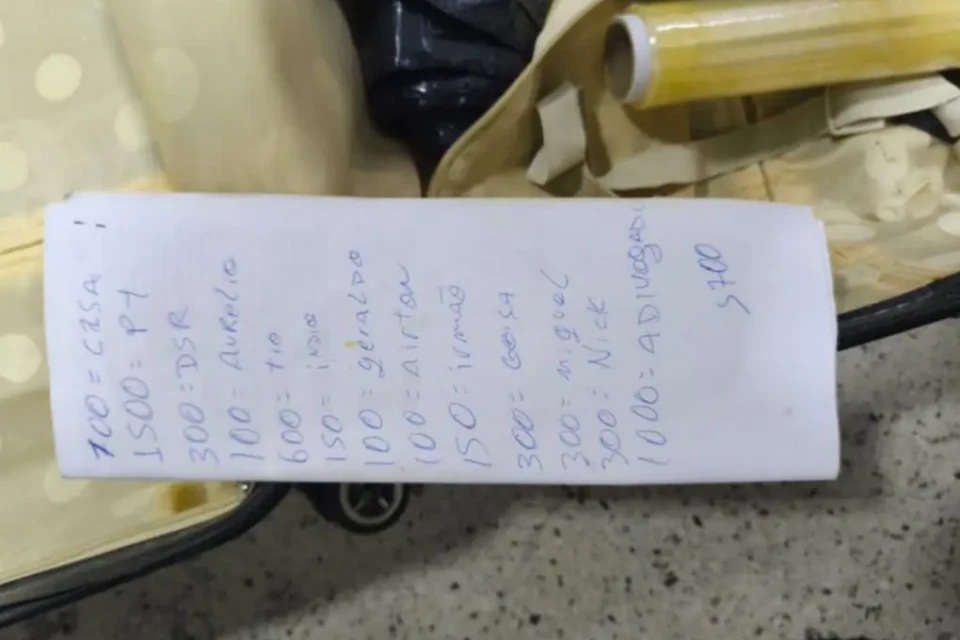 700 = CASA
1500 = PT
300 = DSR
100 = AURELIO
600 = tio
150 = iNDiO
100 = geralDO
100 = Airton
150 = irmão
300 = Geisa
300 = miguel
300 = Nick
1000 = ADIVOGADO
5700